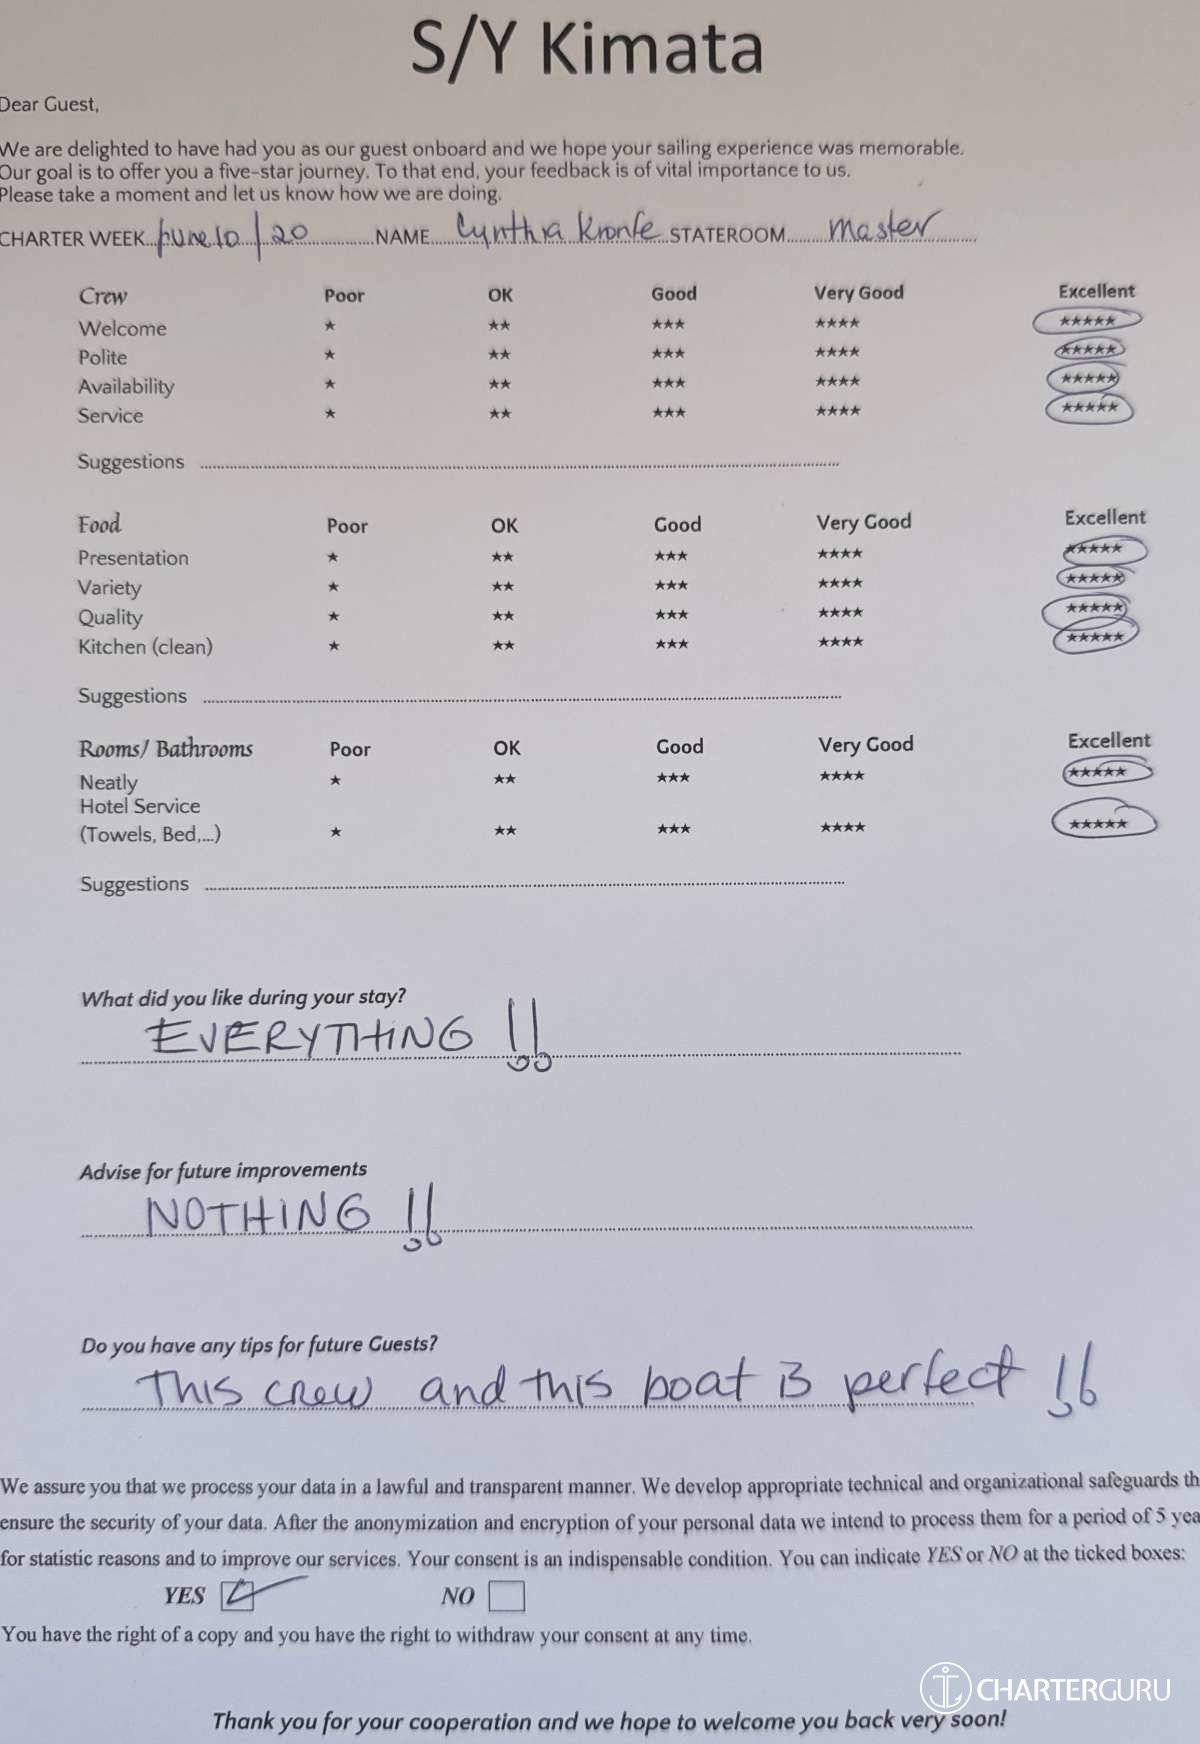 S/Y Kimata
Dear Guest,
We are delighted to have had you as our guest onboard and we hope your sailing experience was memorable.
Our goal is to offer you a five-star journey. To that end, your feedback is of vital importance to us.
Please take a moment and let us know how we are doing.
CHARTER WEEK June 10/20 NAME Cynthia Kronfe STATEROOM master
Crew Poor OK Good Very Good Excellent
Welcome ★ ★★ ★★★ ★★★★ ★★★★★
Polite ★ ★★ ★★★ ★★★★ ★★★★★
Availability ★ ★★ ★★★ ★★★★ ★★★★★
Service ★ ★★ ★★★ ★★★★ ★★★★★
Suggestions
Food Poor OK Good Very Good Excellent
Presentation ★ ★★ ★★★ ★★★★ ★★★★★
Variety ★ ★★ ★★★ ★★★★ ★★★★★
Quality ★ ★★ ★★★ ★★★★ ★★★★★
Kitchen (clean) ★ ★★ ★★★ ★★★★ ★★★★★
Suggestions
Rooms/ Bathrooms Poor OK Good Very Good Excellent
Neatly ★ ★★ ★★★ ★★★★ ★★★★★
Hotel Service
(Towels, Bed,...) ★ ★★ ★★★ ★★★★ ★★★★★
Suggestions
What did you like during your stay?
EVERYTHING !!
Advise for future improvements
NOTHING !!
Do you have any tips for future Guests?
This crew and this boat is perfect !!
We assure you that we process your data in a lawful and transparent manner. We develop appropriate technical and organizational safeguards th
ensure the security of your data. After the anonymization and encryption of your personal data we intend to process them for a period of 5 yea
for statistic reasons and to improve our services. Your consent is an indispensable condition. You can indicate YES or NO at the ticked boxes:
YES NO
You have the right of a copy and you have the right to withdraw your consent at any time.
CHARTERGURU
Thank you for your cooperation and we hope to welcome you back very soon!